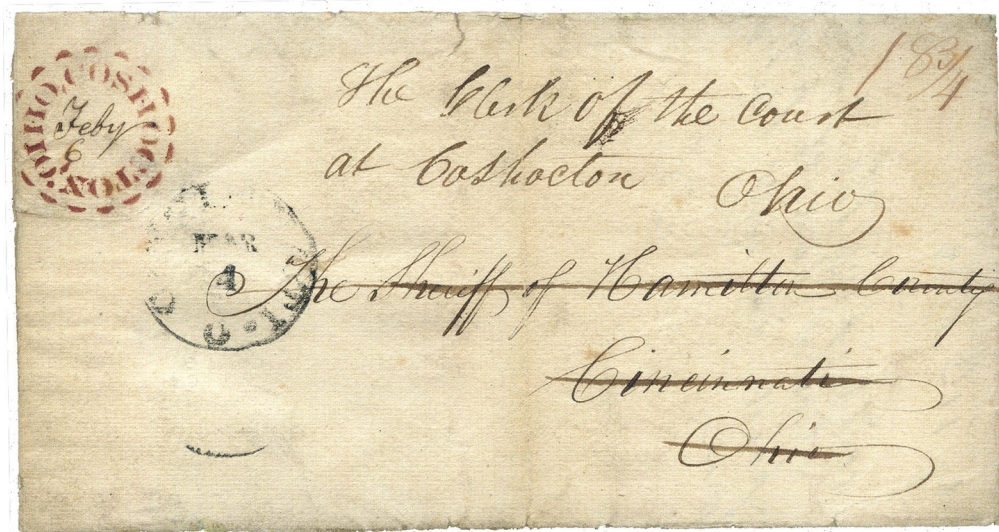 COSHOCTON. OHIO.
Feby
6
18 3/4
The Clerk of the Court
at Coshocton Ohio
MAR
4
The Sheriff of Hamilton County
Cincinnati
Ohio